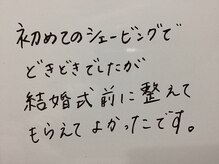 初めてのシェービングで
どきどきでしたが
結婚式前に整えて
もらえてよかったです。